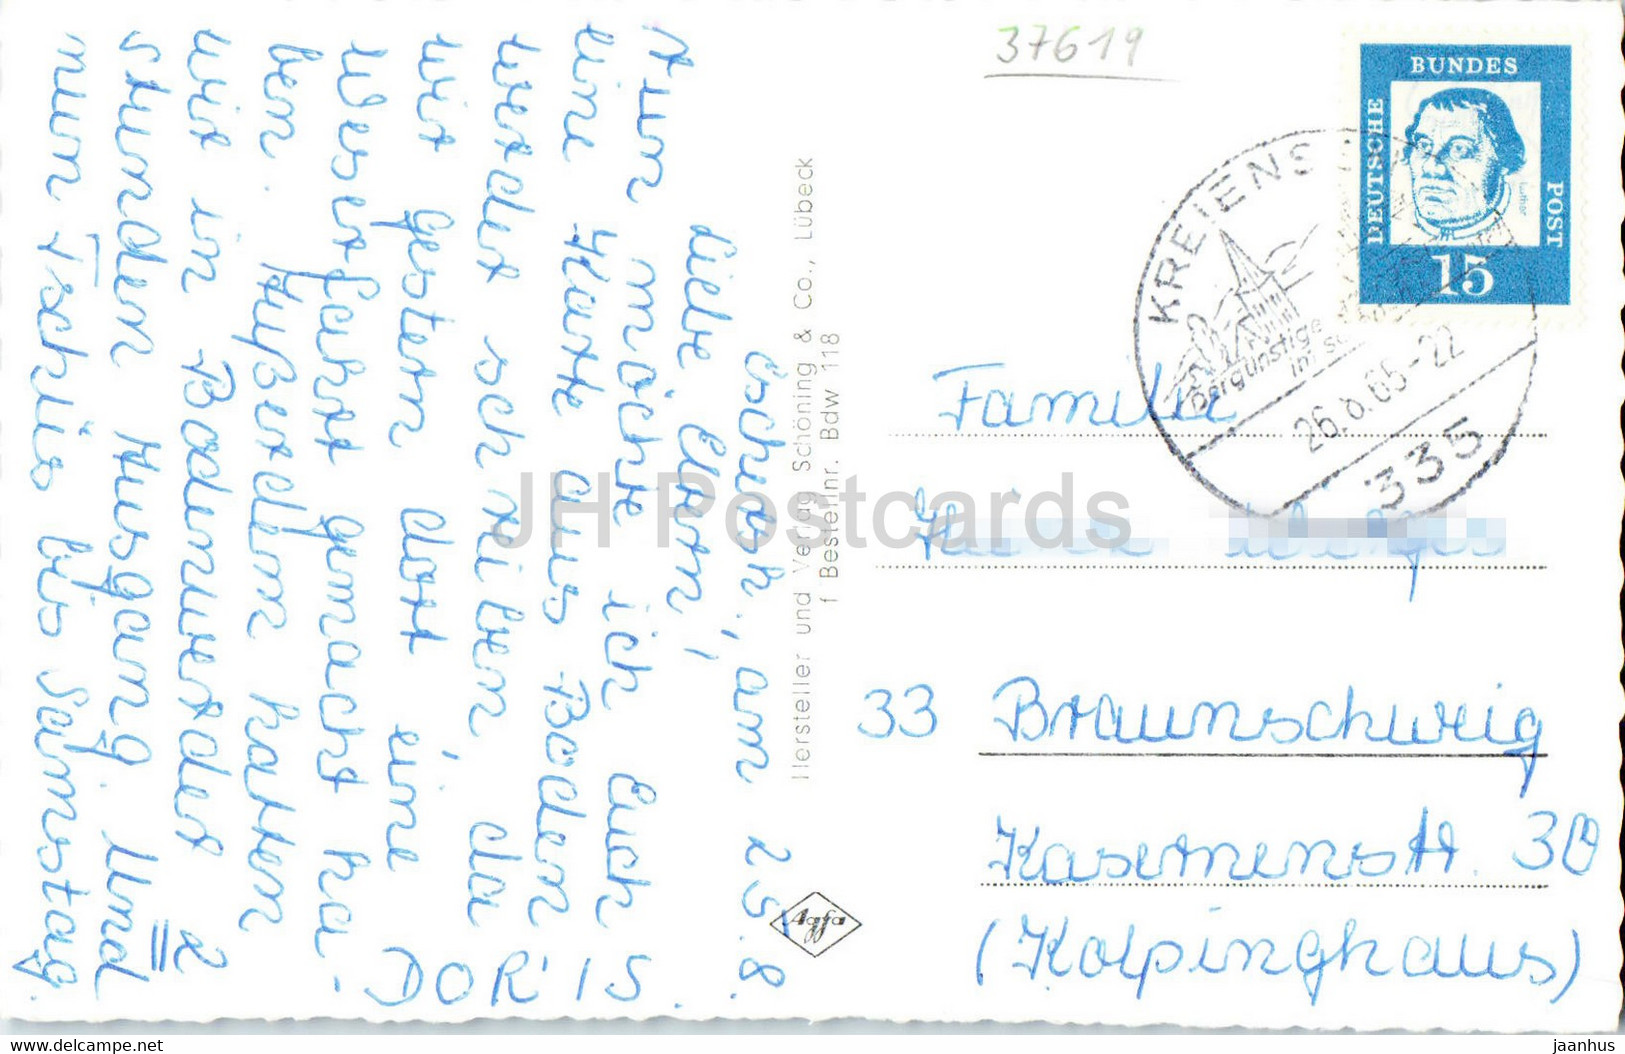 37619
DEUTSCHE
BUNDES
POST
15
Luther
KREIENS
Bergünstige
im
26.8.65-22
335
Familie
33 Braunschweig
Kasernenstr. 30
(Kolpinghaus)
Hersteller und Verlag Schöning & Co., Lübeck
f Bestellnr. Bdw 118
Agfa
Escherh., am 25.8.
Liebe Eltern!
Nun möchte ich Euch
eine Karte aus Boden
werder schreiben, da
wir gestern dort eine
Weserfahrt gemacht ha-
ben. Außerdem hatten
wir in Bodenwerder 2
Stunden Ausgang. Und
nun Tschüs bis Samstag.
DORIS.
JH Postcards
www.delcampe.net
jaanhus